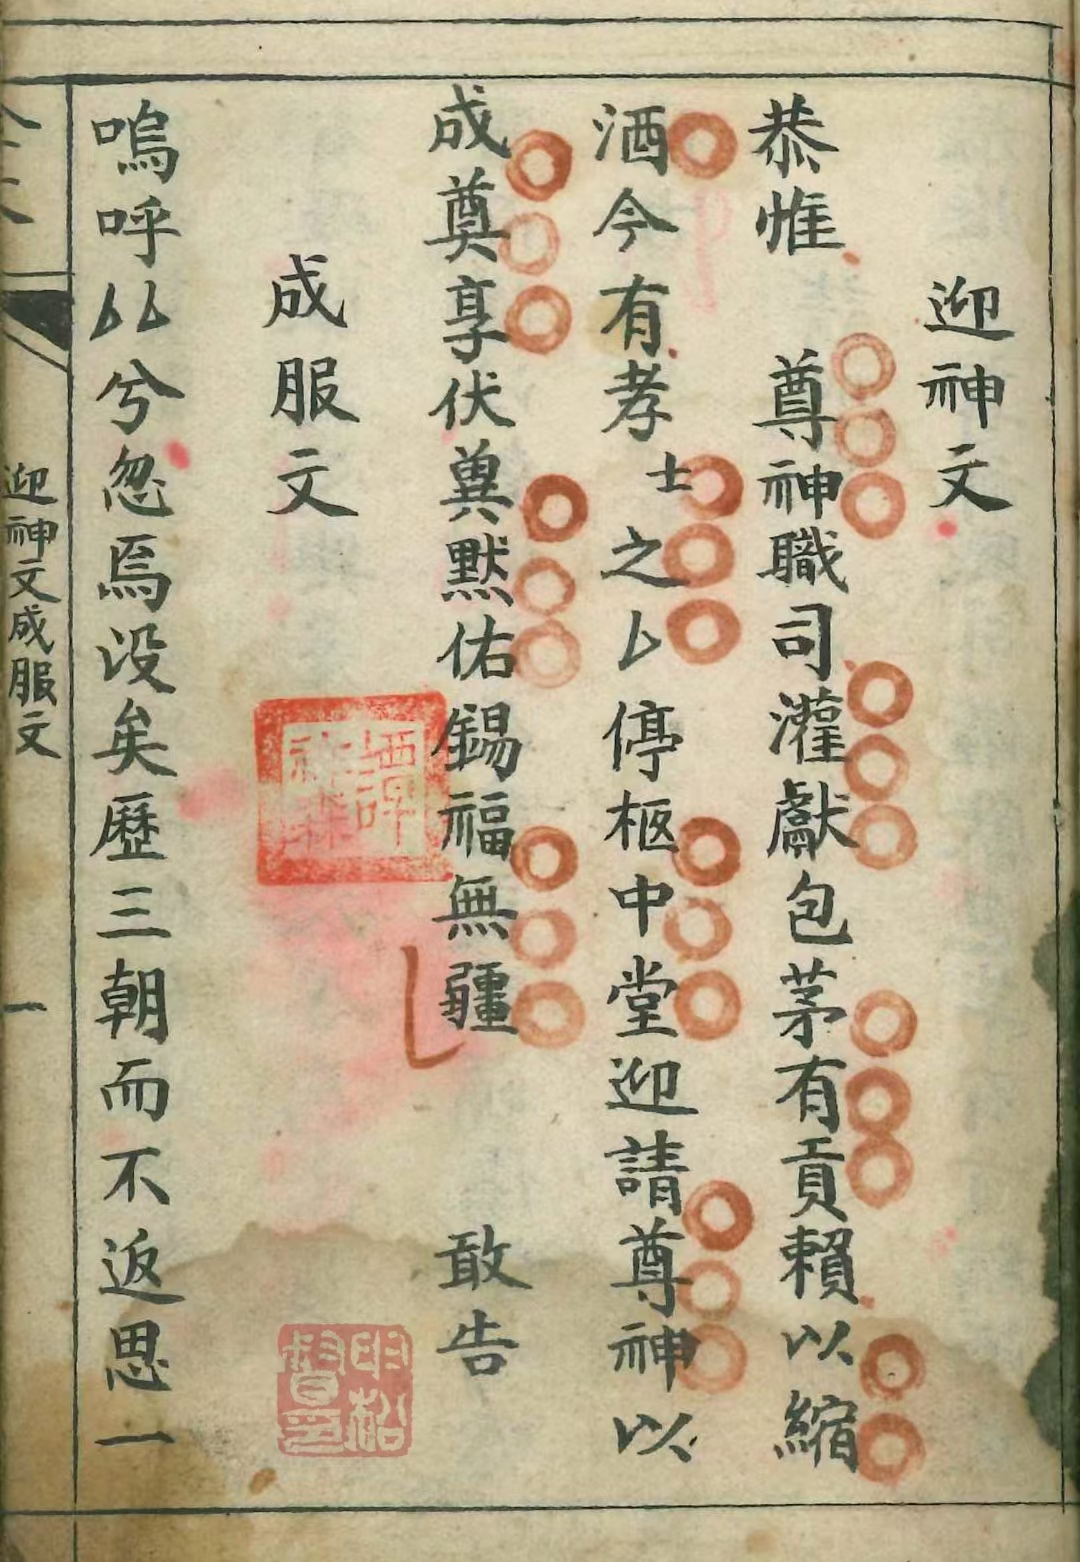 迎神文
恭惟 尊神職司灌獻包茅有貢賴以縮
酒今有孝士之厶停柩中堂迎請尊神以
成奠享伏兾默佑錫福無疆 敢告
成服文
嗚呼厶厶兮忽焉没矣歷三朝而不返思一
迎神文成服文 一